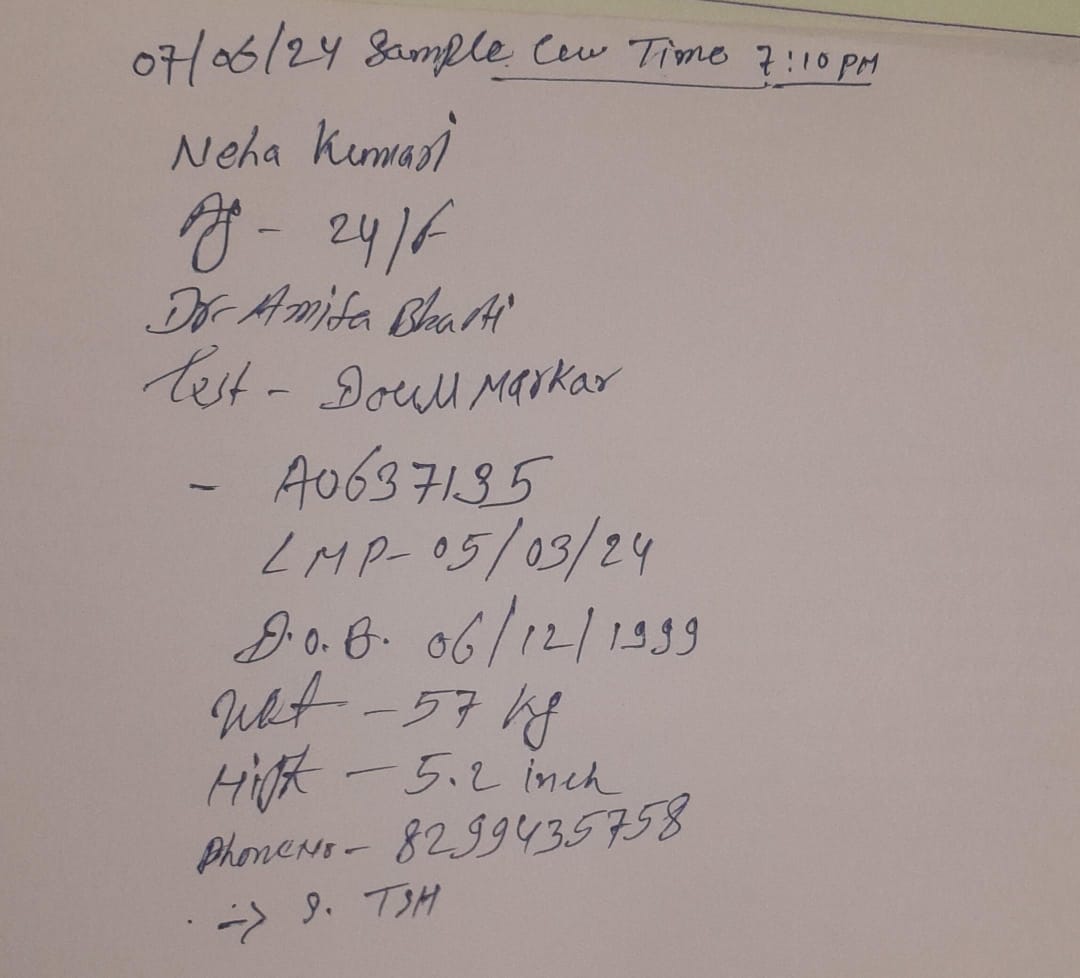 07/06/24 Sample Cew Time 7:10 PM
Neha Kumari
Ag - 24/F
Dr Amita Bharti
Test - Doull Markar
- A0637135
LMP- 05/03/24
D.O.B. 06/12/1999
- 57 kg
Hight - 5.2 inch
Phone No - 8299435758
=> S. TSH